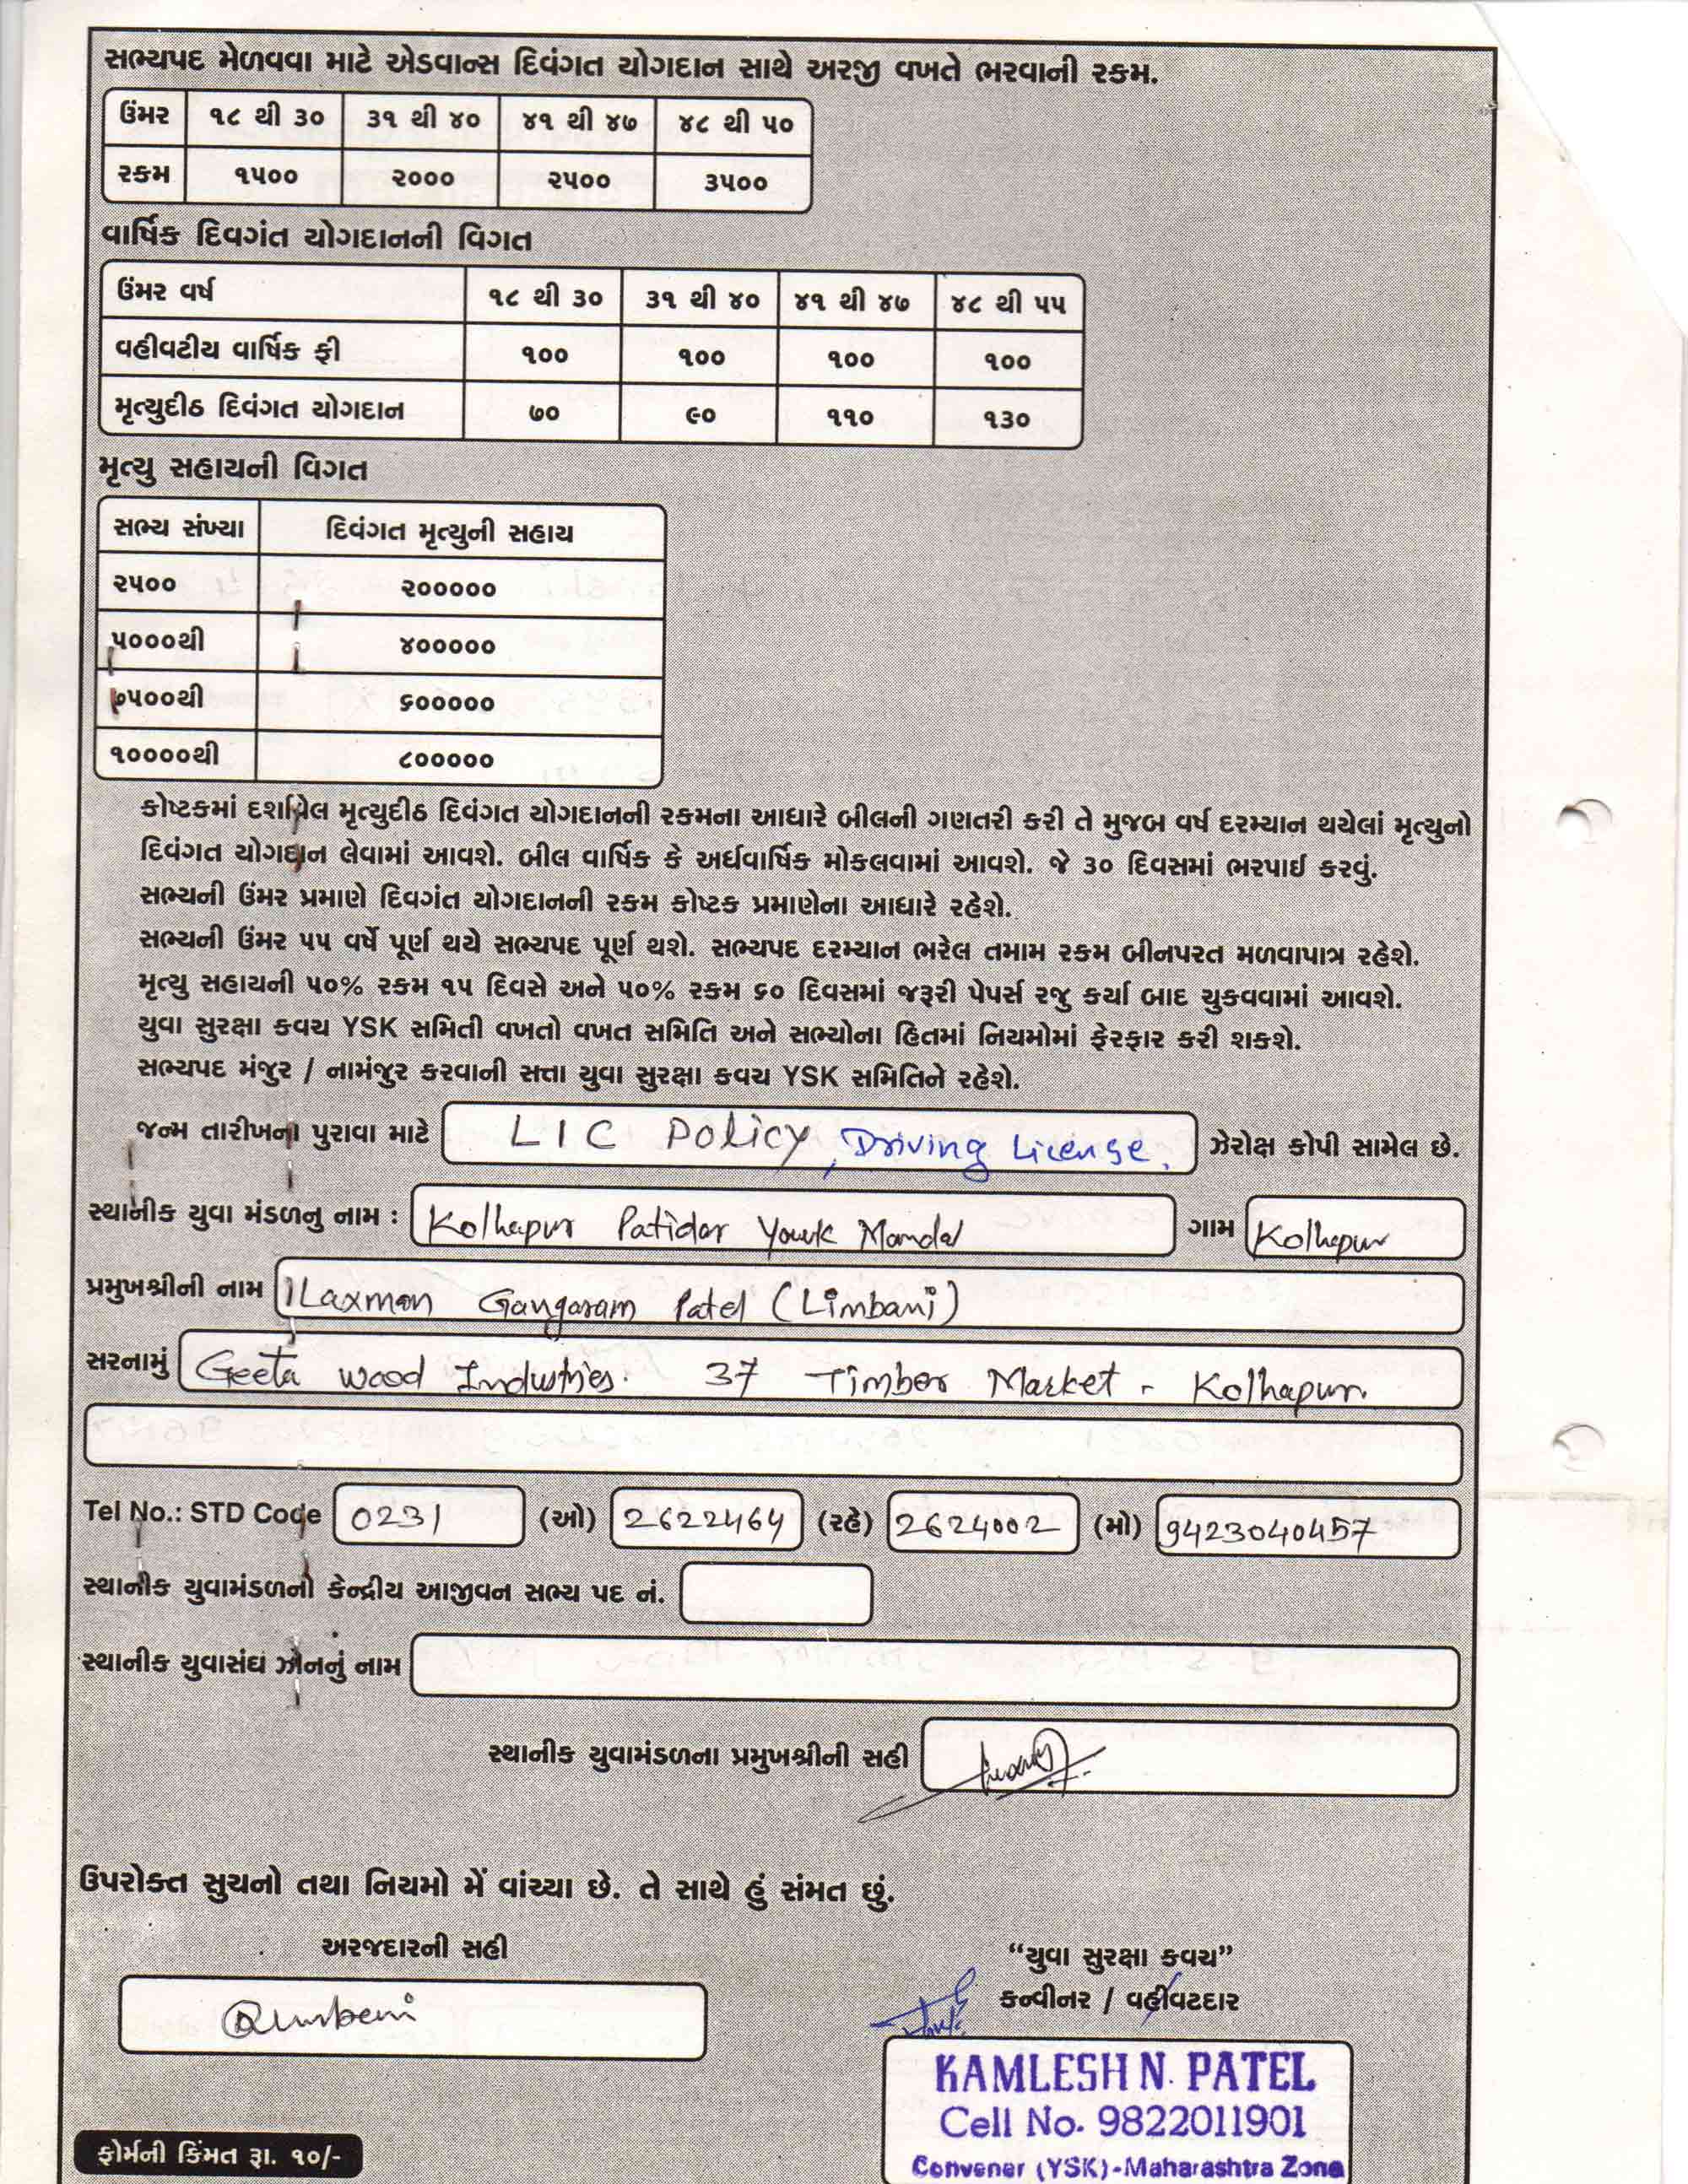 સભ્યપદ મેળવવા માટે એડવાન્સ દિવંગત યોગદાન સાથે અરજી વખતે ભરવાની રકમ.
ઉંમર ૧૮ થી ૩૦ ૩૧ થી ૪૦ ૪૧ થી ૪૭ ૪૮ થી ૫૦
રકમ ૧૫૦૦ ૨૦૦૦ ૨૫૦૦ ૩૫૦૦
વાર્ષિક દિવગંત યોગદાનની વિગત
ઉંમર વર્ષ ૧૮ થી ૩૦ ૩૧ થી ૪૦ ૪૧ થી ૪૭ ૪૮ થી ૫૫
વહીવટીય વાર્ષિક ફી ૧૦૦ ૧૦૦ ૧૦૦ ૧૦૦
મૃત્યુદીઠ દિવંગત યોગદાન ૭૦ ૯૦ ૧૧૦ ૧૩૦
મૃત્યુ સહાયની વિગત
સભ્ય સંખ્યા દિવંગત મૃત્યુની સહાય
૨૫૦૦ ૨૦૦૦૦૦
૫૦૦૦થી ૪૦૦૦૦૦
૭૫૦૦થી ૬૦૦૦૦૦
૧૦૦૦૦થી ૮૦૦૦૦૦
કોષ્ટકમાં દર્શાવેલ મૃત્યુદીઠ દિવંગત યોગદાનની રકમના આધારે બીલની ગણતરી કરી તે મુજબ વર્ષ દરમ્યાન થયેલાં મૃત્યુનો
દિવંગત યોગદાન લેવામાં આવશે. બીલ વાર્ષિક કે અર્ધવાર્ષિક મોકલવામાં આવશે. જે ૩૦ દિવસમાં ભરપાઈ કરવું.
સભ્યની ઉંમર પ્રમાણે દિવગંત યોગદાનની રકમ કોષ્ટક પ્રમાણેના આધારે રહેશે.
સભ્યની ઉંમર ૫૫ વર્ષે પૂર્ણ થયે સભ્યપદ પૂર્ણ થશે. સભ્યપદ દરમ્યાન ભરેલ તમામ રકમ બીનપરત મળવાપાત્ર રહેશે.
મૃત્યુ સહાયની ૫૦% રકમ ૧૫ દિવસે અને ૫૦% રકમ ૬૦ દિવસમાં જરૂરી પેપર્સ રજુ કર્યા બાદ ચુકવવામાં આવશે.
યુવા સુરક્ષા કવચ YSK સમિતી વખતો વખત સમિતિ અને સભ્યોના હિતમાં નિયમોમાં ફેરફાર કરી શકશે.
સભ્યપદ મંજુર / નામંજુર કરવાની સત્તા યુવા સુરક્ષા કવચ YSK સમિતિને રહેશે.
જન્મ તારીખના પુરાવા માટે LIC Policy, Driving License. ઝેરોક્ષ કોપી સામેલ છે.
સ્થાનીક યુવા મંડળનુ નામ : Kolhapur Patidar Yuvak Mandal ગામ Kolhapur
પ્રમુખશ્રીની નામ Laxman Gangaram Patel (Limbani)
સરનામું Geeta Wood Industries. 37 Timber Market - Kolhapur.
Tel No.: STD Code 0231 (ઓ) 2622464 (રહે) 2624002 (મો) 9423040457
સ્થાનીક યુવામંડળનો કેન્દ્રીય આજીવન સભ્ય પદ નં.
સ્થાનીક યુવાસંઘ ઝોનનું નામ
સ્થાનીક યુવામંડળના પ્રમુખશ્રીની સહી
ઉપરોક્ત સુચનો તથા નિયમો મેં વાંચ્યા છે. તે સાથે હું સંમત છું.
અરજદારની સહી
“યુવા સુરક્ષા કવચ”
કન્વીનર / વહીવટદાર
KAMLESH N. PATEL
Cell No. 9822011901
Convener (YSK)-Maharashtra Zone
ફોર્મની કિંમત રૂા. ૧૦/-